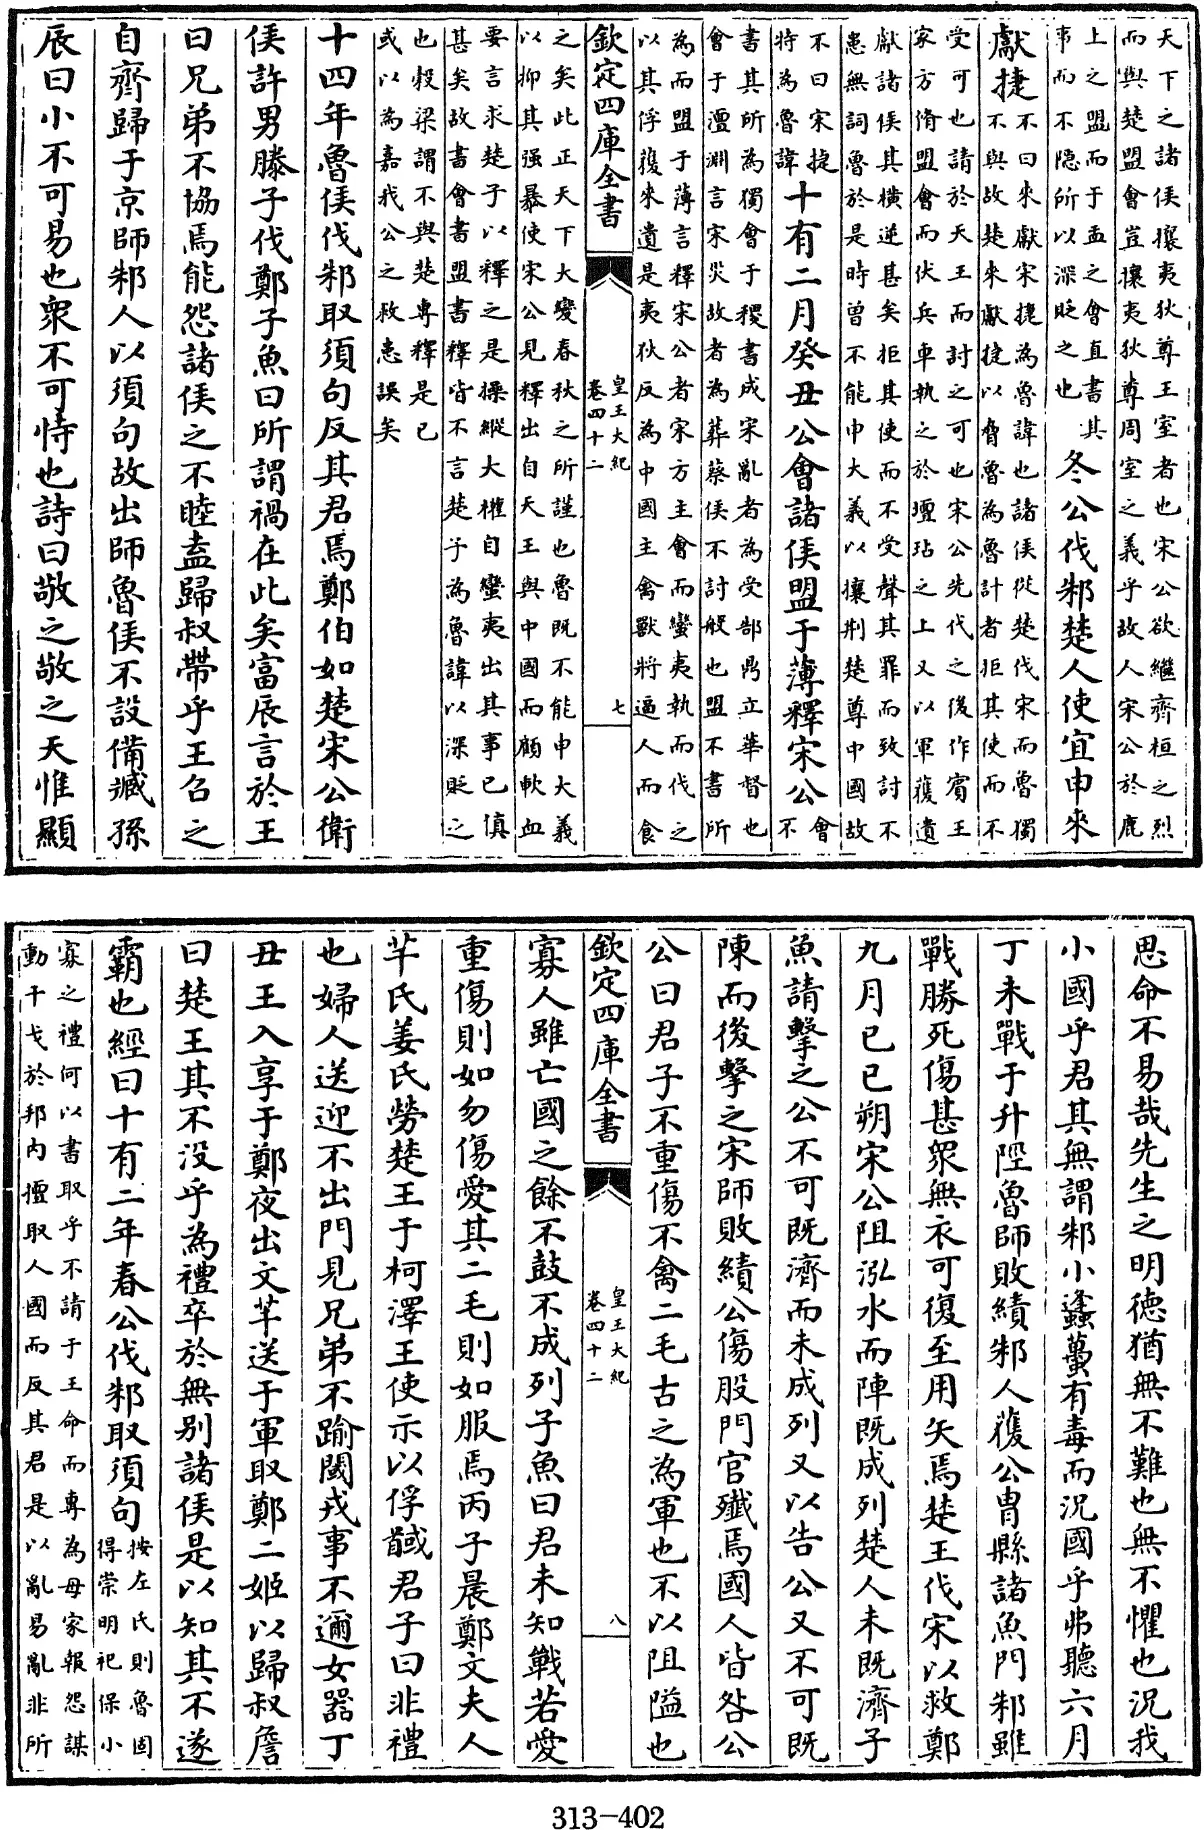 天下之諸侯攘夷狄尊王室者也宋公欲繼齊桓之烈
而與楚盟會豈攘夷狄尊周室之義乎故人宋公於鹿
上之盟而于盂之會直書其
事而不隱所以深貶之也
冬公伐邾楚人使宜申來
獻捷
不曰來獻宋捷為魯諱也諸侯從楚伐宋而魯獨
不與故楚來獻捷以脅魯為魯計者拒其使而不
受可也請於天王而討之可也宋公先代之後作賓王
家方脩盟會而伏兵車執之於壇坫之上又以軍獲遺
獻諸侯其橫逆甚矣拒其使而不受聲其罪而致討不
患無詞魯於是時曾不能申大義以攘荆楚尊中國故
不曰宋捷
特為魯諱
十有二月癸丑公會諸侯盟于薄釋宋公
會
不
書其所為獨會于稷書成宋亂者為受郜鼎立華督也
會于澶淵言宋災故者為葬蔡侯不討般也盟不書所
為而盟于薄言釋宋公者宋方主會而蠻夷執而伐之
以其俘獲來遺是夷狄反為中國主禽獸將逼人而食
欽定四庫全書
皇王大紀
卷四十二
七
之矣此正天下大變春秋之所謹也魯既不能申大義
以抑其强暴使宋公見釋出自天王與中國而顧歃血
要言求楚子以釋之是操縱大權自蠻夷出其事已慎
甚矣故書會書盟書釋皆不言楚子為魯諱以深貶之
也榖梁謂不與楚專釋是已
或以為嘉我公之救患誤矣
十四年魯侯伐邾取須句反其君焉鄭伯如楚宋公衛
侯許男滕子伐鄭子魚曰所謂禍在此矣富辰言於王
曰兄弟不協焉能怨諸侯之不睦盍歸叔帶乎王召之
自齊歸于京師邾人以須句故出師魯侯不設備臧孫
辰曰小不可易也衆不可恃也詩曰敬之敬之天惟顯
思命不易哉先生之明德猶無不難也無不懼也況我
小國乎君其無謂邾小蠭蠆有毒而況國乎弗聽六月
丁未戰于升陘魯師敗績邾人獲公胄縣諸魚門邾雖
戰勝死傷甚衆無衣可復至用矢焉楚王伐宋以救鄭
九月已已朔宋公阻泓水而陣既成列楚人未既濟子
魚請擊之公不可既濟而未成列又以告公又不可既
陳而後擊之宋師敗績公傷股門官殲焉國人皆咎公
公曰君子不重傷不禽二毛古之為軍也不以阻隘也
欽定四庫全書
皇王大紀
卷四十二
八
寡人雖亡國之餘不鼓不成列子魚曰君未知戰若愛
重傷則如勿傷愛其二毛則如服焉丙子晨鄭文夫人
芊氏姜氏勞楚王于柯澤王使示以俘馘君子曰非禮
也婦人送迎不出門見兄弟不踰閾戎事不邇女器丁
丑王入享于鄭夜出文芊送于軍取鄭二姬以歸叔詹
曰楚王其不没乎為禮卒於無别諸侯是以知其不遂
霸也經曰十有二年春公伐邾取須句
按左氏則魯固
得崇明祀保小
寡之禮何以書取乎不請于王命而專為母家報怨謀
動干戈於邦内擅取人國而反其君是以亂易亂非所
313-402